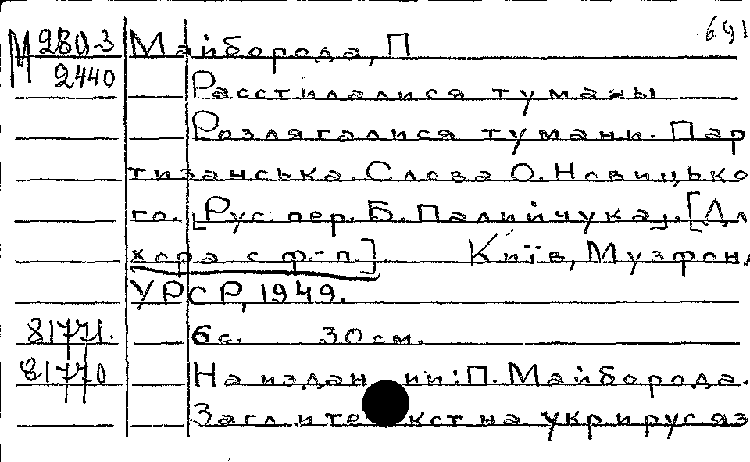 691
М 280-3 Майборода, П
2440 Расстилалися туманы
Розлягалися тумани. Пар
тизанська. Слова О. Новицько
го. [Рус. пер. Б. Палийчука]. [Дл
хора с ф-п.] Київ, Музфонд
УРСР, 1949.
81771. 6 с. 30 см.
81770 На издан ии: П. Майборода.
Загл. и текст на укр. и рус. яз